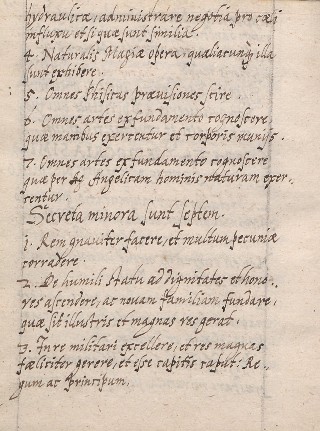 hydraulicæ, administrare negotia pro cœli
influxu et si quæ sunt similia.
4. Naturalis Magiæ opera, qualiacunq illa
sunt exhibere.
5. Omnes Phisicas prævisiones scire.
6. Omnes artes ex fundamento cognoscere,
quæ manibus exercentur et corporis munijs.
7. Omnes artes ex fundamento cognoscere
quæ per Angelicam hominis naturam exer-
centur.
Secreta minora sunt septem.
1. Rem gnaviter facere, et multum pecuniæ
corradere.
2. De humili statu ad dignitates et hono-
res ascendere, ac novam familiam fundare,
quæ sit illustris et magnas res gerat.
3. In re militari excellere, et res magnas
fæliciter gerere, et esse capitis caput: Re-
gum ac Principum.